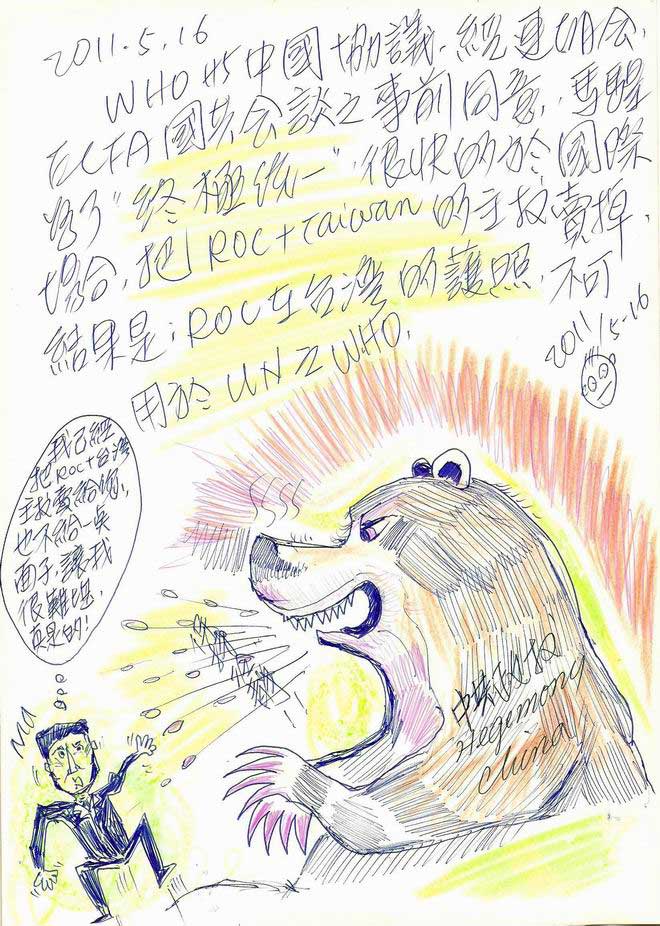 2011.5.16
WHO 與中國協議,經連胡会,
ECFA 國共会談之事前同意,
了"終極統一",很快的於國際
場合,把 ROC+Taiwan 的主权賣掉,
結果是:ROC在台灣的護照,不可
用於 UN 之 WHO.
2011/5-16
我已經
把ROC+台灣
主权賣給你,
也不給一点
面子,讓我
很難堪,
真是的!
Ma
中共政权
Hegemony
China